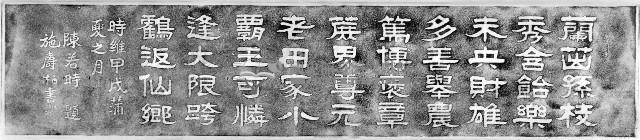 蘭茁孫枝
秀含飴樂
未央財雄
多善舉農
篤博褒章
蔗界尊元
老田家小
霸王可憐
逢大限跨
鶴返仙鄉
時維甲戌蒲
夏之月
陳若時題
施壽書